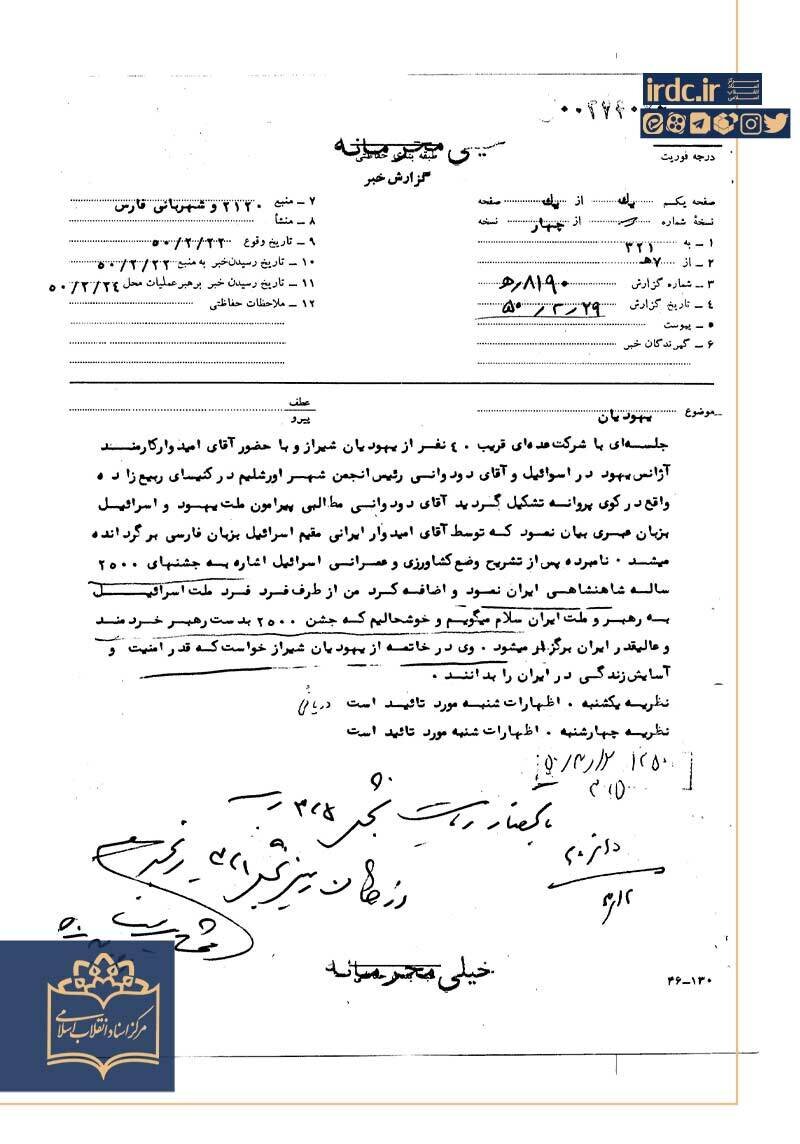 irdc.ir
مرکز اسناد انقلاب اسلامی
خیلی محرمانه
طبقه بندی حفاظتی
گزارش خبر
درجه فوریت
صفحه یکم یک از یک صفحه
نسخهٔ شماره از چهار نسخه
۱ – به ۳۲۱
۲ – از ۷ه
۳ – شماره گزارش ۸۱۹۰/ه
۴ – تاریخ گزارش ۵۰/۲/۲۹
۵ – پیوست
۶ – گیرندگان خبر
۷ – منبع ۲۱۲۰ و شهربانی فارس
۸ – منشأ
۹ – تاریخ وقوع ۵۰/۲/۲۲
۱۰ – تاریخ رسیدن خبر به منبع ۵۰/۲/۲۲
۱۱ – تاریخ رسیدن خبر برهبر عملیات محل ۵۰/۲/۲۴
۱۲ – ملاحظات حفاظتی
موضوع یهودیان
عطف
پیرو
جلسه‌ای با شرکت عده‌ای قریب ۴۰ نفر از یهودیان شیراز و با حضور آقای امیدوار کارمند
آژانس یهود در اسرائیل و آقای دودوانی رئیس انجمن شهر اورشلیم در کنیسای ربیع زاده
واقع در کوی پروانه تشکیل گردید آقای دودوانی مطالبی پیرامون ملت یهود و اسرائیل
بزبان عبری بیان نمود که توسط آقای امیدوار ایرانی مقیم اسرائیل بزبان فارسی برگردانده
میشد ۰ نامبرده پس از تشریح وضع کشاورزی و عمرانی اسرائیل اشاره به جشنهای ۲۵۰۰
ساله شاهنشاهی ایران نمود و اضافه کرد من از طرف فرد فرد ملت اسرائیل
به رهبر و ملت ایران سلام میگویم و خوشحالیم که جشن ۲۵۰۰ بدست رهبر خردمند
و عالیقدر ایران برگزار میشود ۰ وی در خاتمه از یهودیان شیراز خواست که قدر امنیت و
آسایش زندگی در ایران را بدانند ۰
نظریه یکشنبه ۰ اظهارات شنبه مورد تائید است
نظریه چهارشنبه ۰ اظهارات شنبه مورد تائید است
خیلی محرمانه
۴۶–۱۳۰
مرکز اسناد انقلاب اسلامی